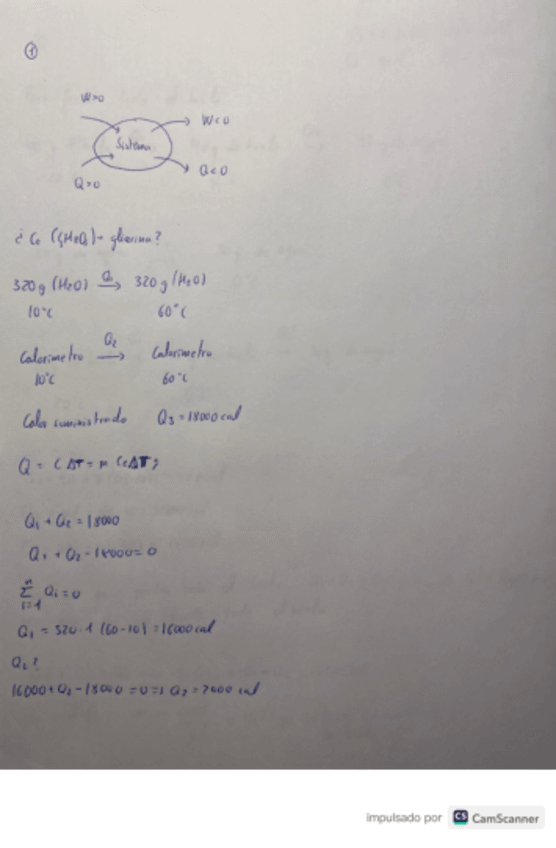 ①
W>0
W<0
Sistema
Q>0
Q<0
¿Ce (C3H8O3)- glicerina?
320g (H2O) Q1→ 320g (H2O)
10°C 60°C
Calorimetro Q2→ Calorimetro
10°C 60°C
Calor suministrado Q3=18000cal
Q = CΔT = m CeΔT
Q1 + Q2 = 18000
Q1 + Q2 - 18000 = 0
n Σ i=1 Qi = 0
Q1 = 320·1 (60-10) = 16000cal
Q2?
16000+Q2-18000 =0 => Q2 = 2000 cal
impulsado por CS CamScanner